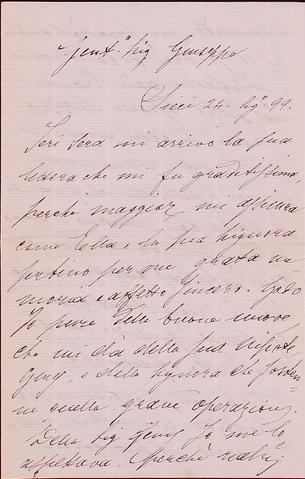 Gent.o Sig Giuseppe
Sieci 24. Ag.o 99.
Ieri sera mi arrivò la sua
lettera che mi fu graditissima
perché maggior mi assicura
come Ella e la sua Signora
portino per me grata me
moria e affetto sincero. Godo
Io pure delle buone nuove
che mi dà della sua Nipote
Geny, e della Signora che sosten=
ne quella grave operazione.
Della Sig Geny Io me lo
aspettava. Perché